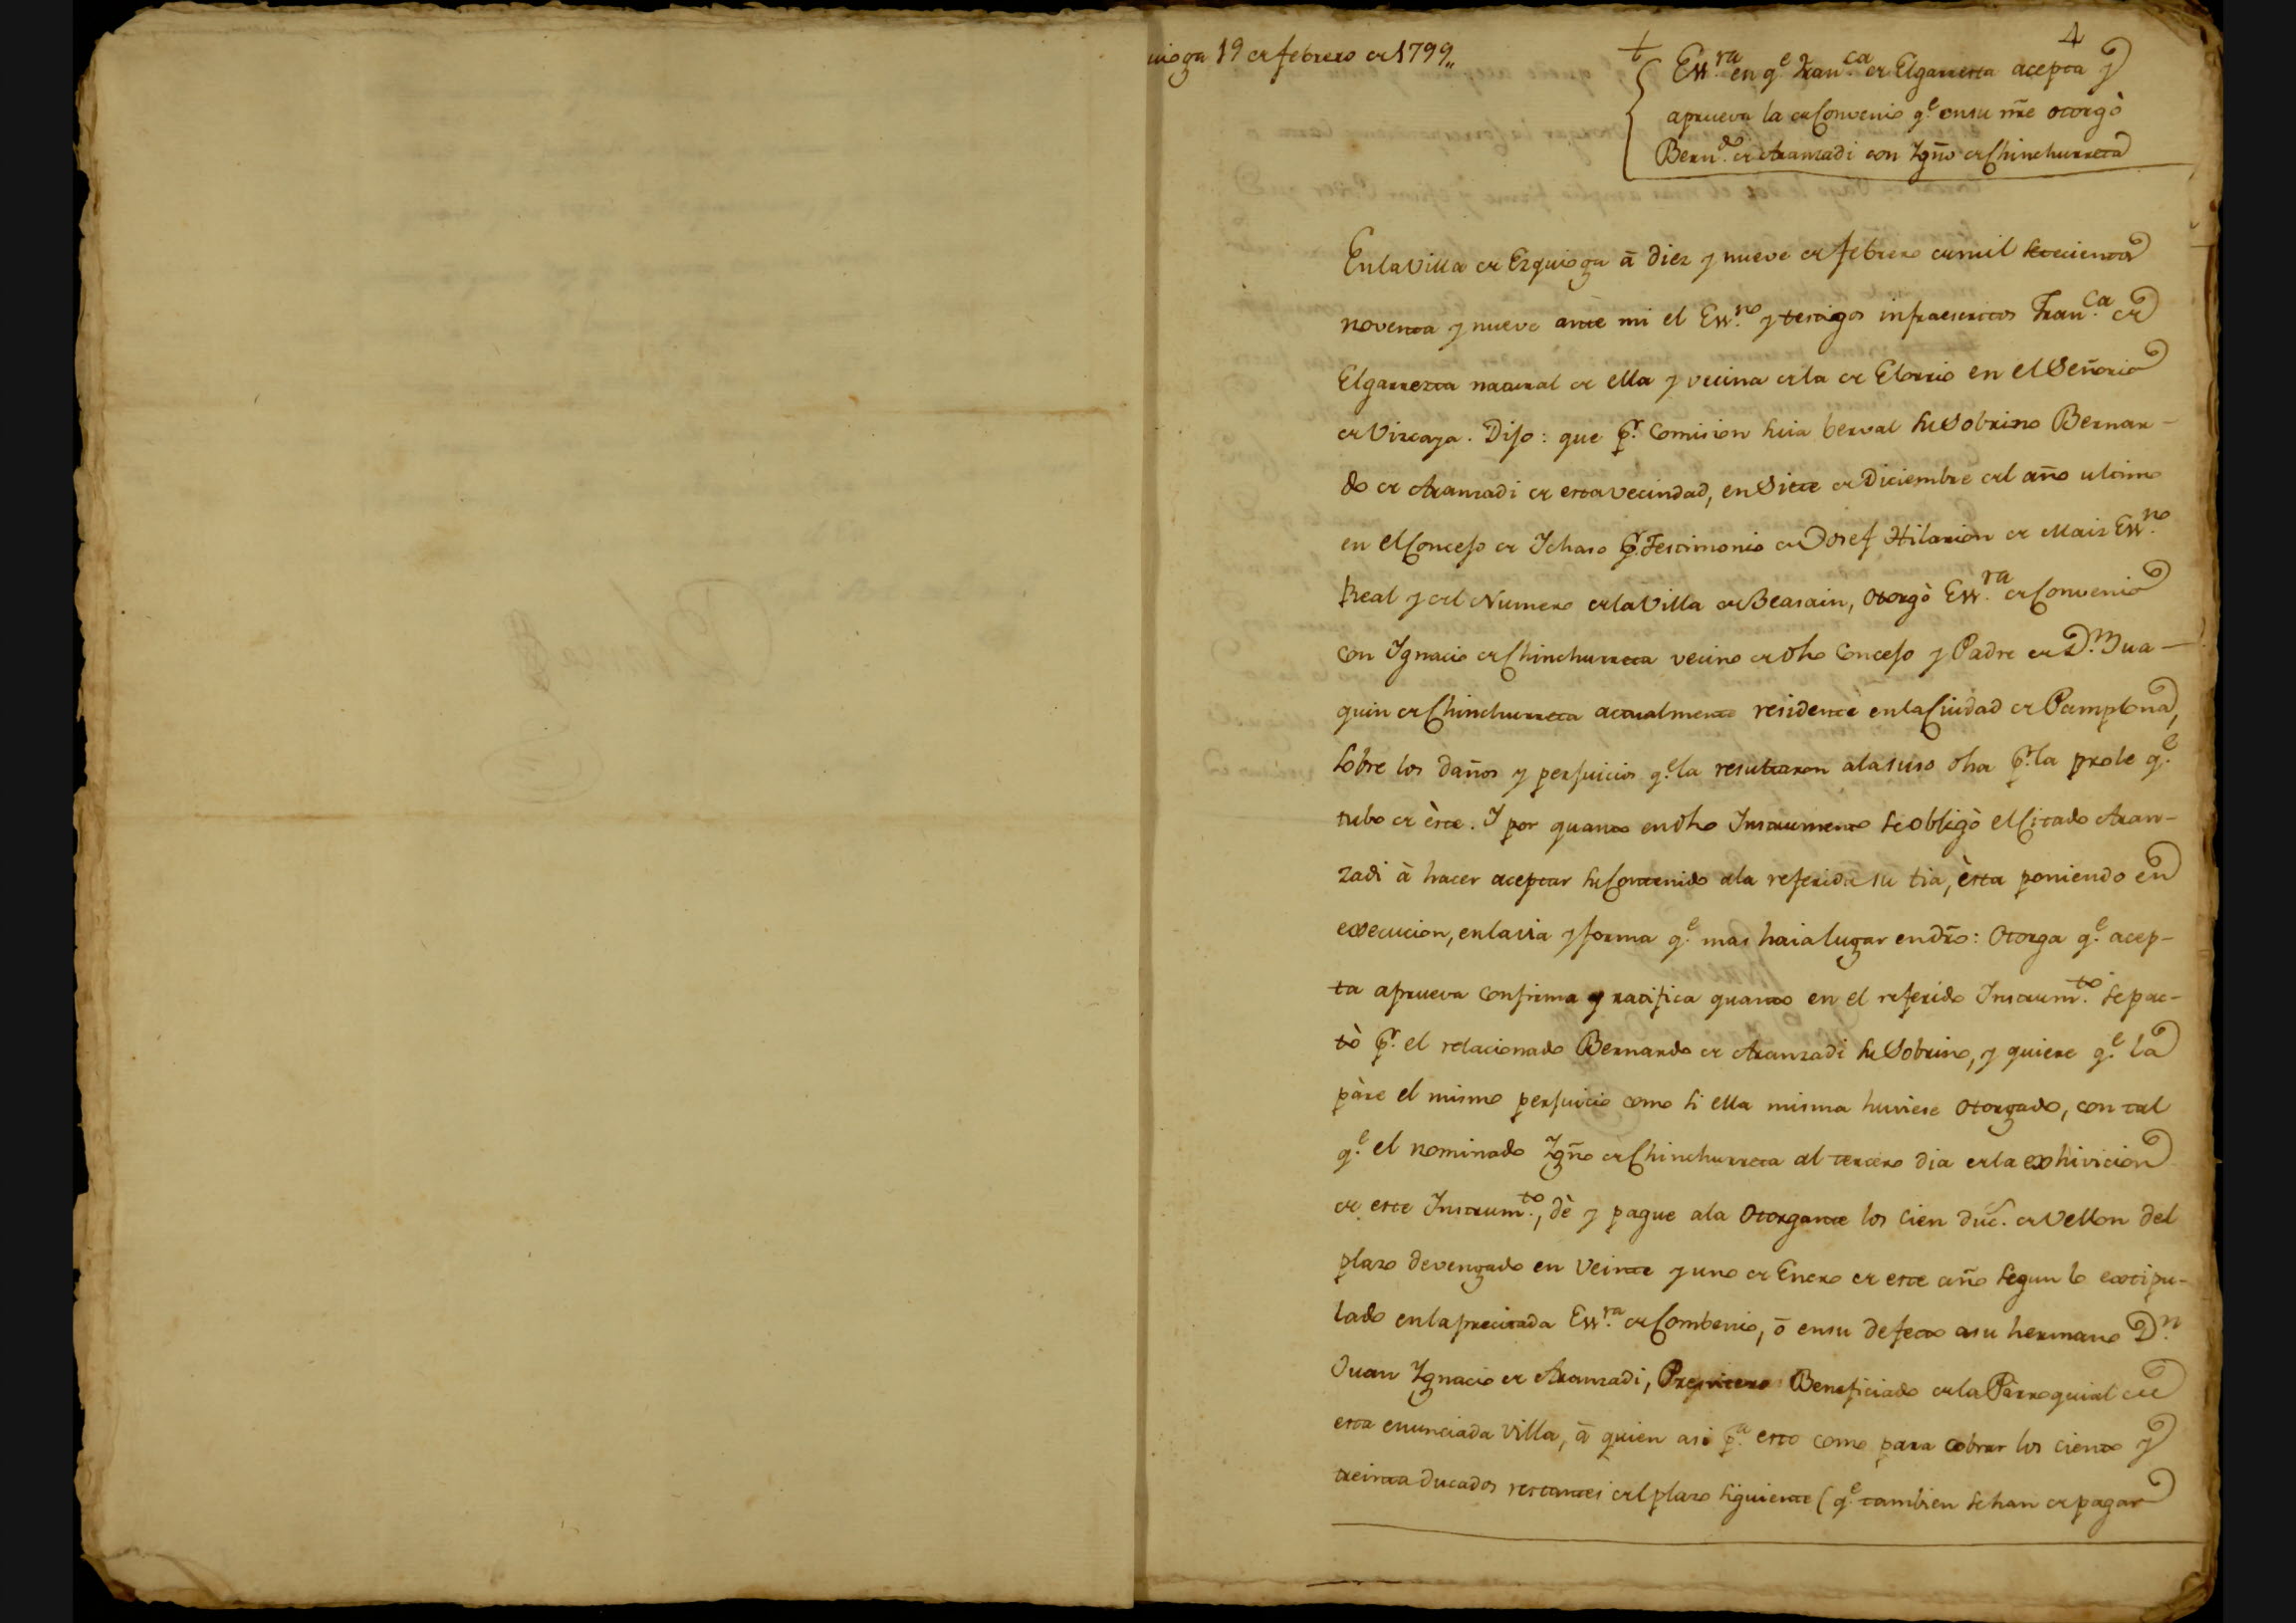 uioga 19 de febrero de 1799,,
4
Ess.ra en q.e Fran.ca de Elgarresta acepta y
aprueva la de Convenio q.e en su nr̃e otorgò
Bern.do de Aranzadi con Ygño de Chinchurreta
En la Villa de Ezquioga â diez y nueve de febrero de mil setecientos
noventa y nueve ante mi el Ess.no y testigos infraescritos Fran.ca de
Elgarresta natural de ella y vecina de la de Elorrio en el Señorio
de Vizcaya. Dijo: que p.r Comision suia berval su Sobrino Bernar-
do de Aranzadi de esta vecindad, en Siete de Diciembre del año ultimo
en el Concejo de Ichaso p.r Testimonio de Josef Hilarion de Maiz Ess.no
Real y del Numero de la Villa de Beasain, otorgò Ess.ra de Convenio
con Ignacio de Chinchurreta vecino de dho Concejo y Padre de D.n Jua-
quin de Chinchurreta actualmente residente en la Ciudad de Pamplona,
sobre los daños y perjuicios q.e la resultaron a la suso dha p.r la prole q.e
tubo de èste. Y por quanto en dho Instrumento se obligò el Citado Aran-
zadi à hacer aceptar su Contenido a la referida su tia, èsta poniendo en
execucion, en la via y forma q.e mas haia lugar en dr̃o: Otorga q.e acep-
ta aprueva confirma y ratifica quanto en el referido Instrum.to se pac-
tò p.r el relacionado Bernardo de Aranzadi su Sobrino, y quiere q.e la
pàre el mismo perjuicio como si ella misma huviese otorgado, con tal
q.e el nominado Ygño de Chinchurreta al tercero dia de la exhivicion
de este Instrum.to, dè y pague a la Otorgante los Cien duc.s de Vellon del
plazo devengado en Veinte y uno de Enero de este año segun lo extipu-
lado en la precitada Ess.ra de Combenio, ô en su defecto a su hermano D.n
Juan Ygnacio de Aranzadi, Presvitero Beneficiado de la Parroquial de
esta enunciada Villa, â quien asi p.a esto como para cobrar los ciento y
treinta ducados restantes del plazo siguiente (q.e tambien se han de pagar